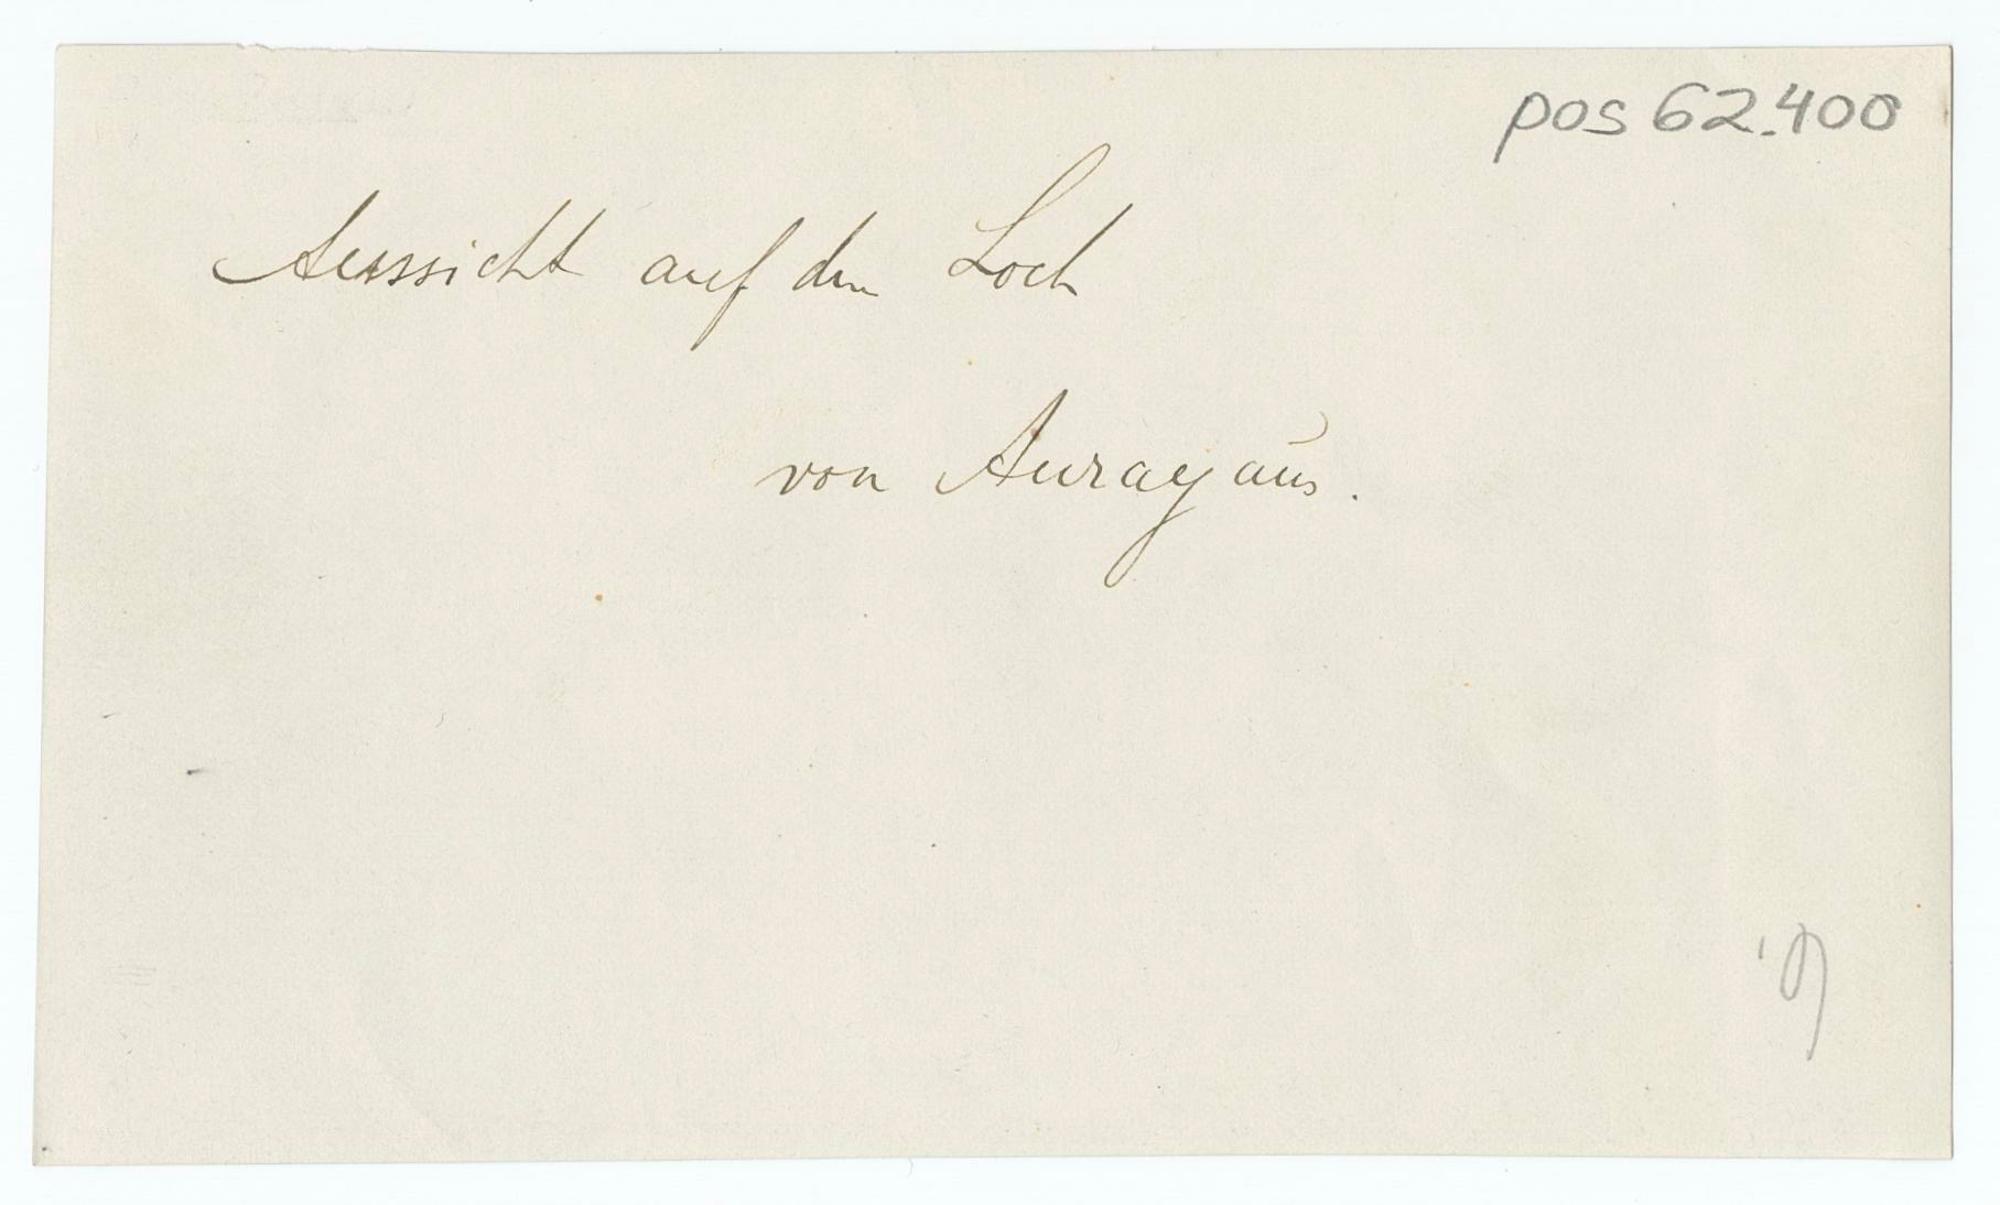 pos 62.400
Aussicht auf den Loch
von Auray aus.